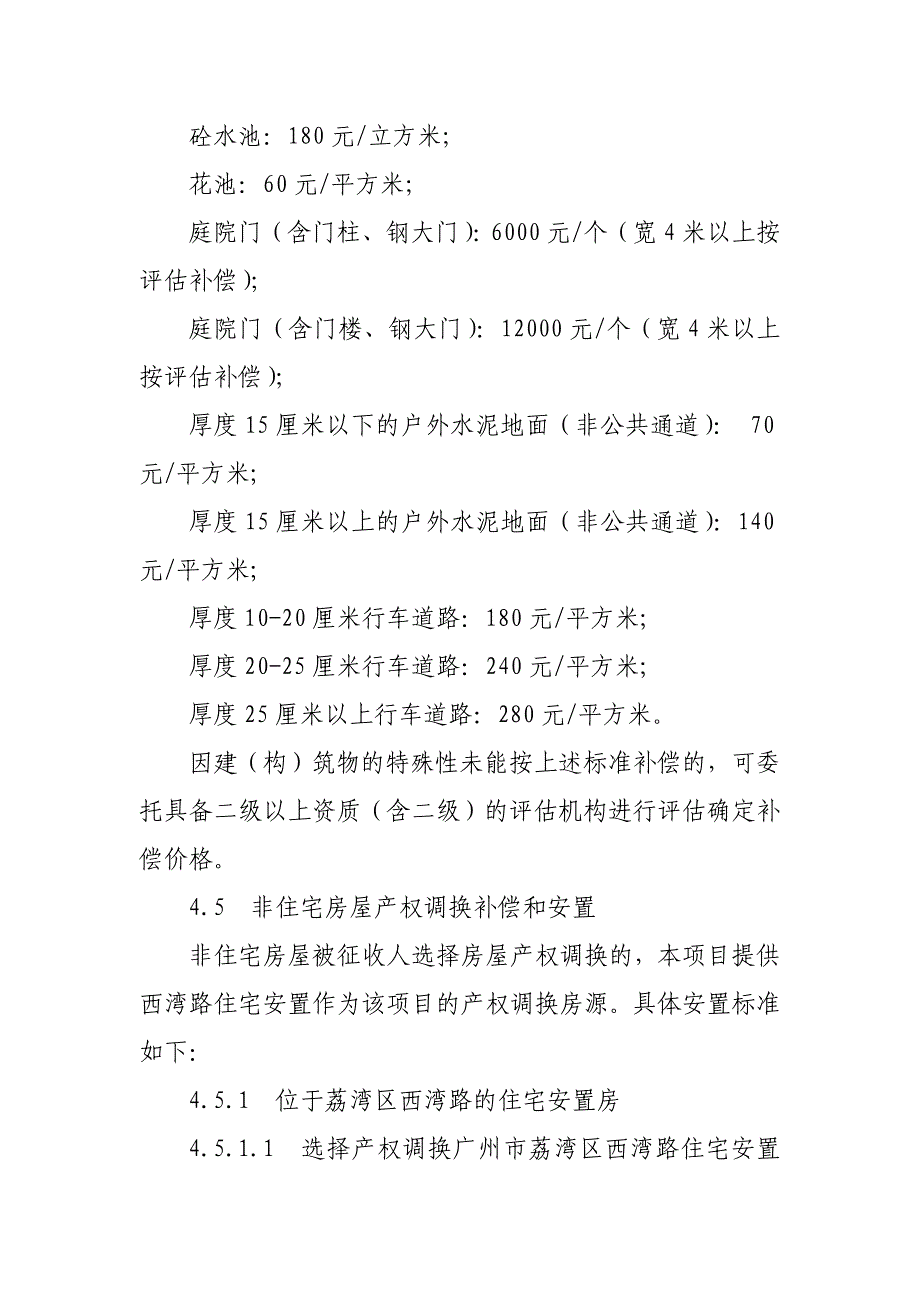 砼水池：180 元/立方米；
花池：60 元/平方米；
庭院门（含门柱、钢大门）：6000 元/个（宽 4 米以上按
评估补偿）；
庭院门（含门楼、钢大门）：12000 元/个（宽 4 米以上
按评估补偿）；
厚度 15 厘米以下的户外水泥地面（非公共通道）： 70
元/平方米；
厚度 15 厘米以上的户外水泥地面（非公共通道）：140
元/平方米；
厚度 10-20 厘米行车道路：180 元/平方米；
厚度 20-25 厘米行车道路：240 元/平方米；
厚度 25 厘米以上行车道路：280 元/平方米。
因建（构）筑物的特殊性未能按上述标准补偿的，可委
托具备二级以上资质（含二级）的评估机构进行评估确定补
偿价格。
4.5 非住宅房屋产权调换补偿和安置
非住宅房屋被征收人选择房屋产权调换的，本项目提供
西湾路住宅安置作为该项目的产权调换房源。具体安置标准
如下：
4.5.1 位于荔湾区西湾路的住宅安置房
4.5.1.1 选择产权调换广州市荔湾区西湾路住宅安置